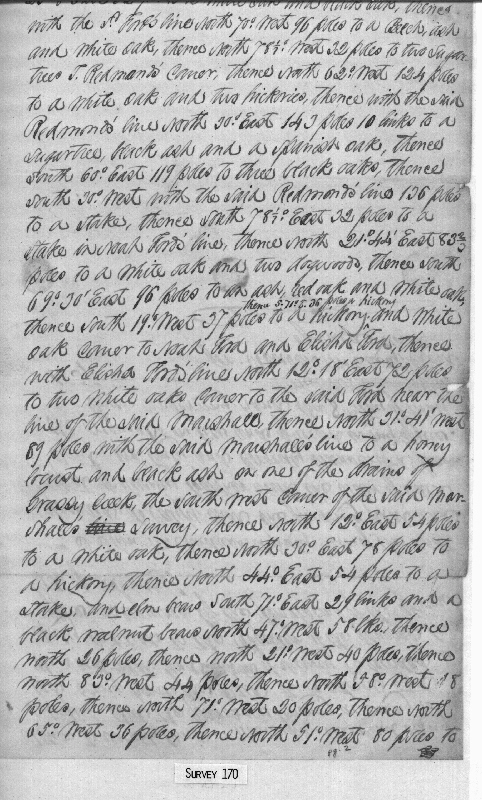 with the sd. Fords line North 70° West 96 poles to a Beech, ash
and white oak, thence North 78½° West 32 poles to two Sugar
trees T. Redmond's Corner, thence North 62° West 124 poles
to a white oak and two hickories, thence with the said
Redmond's line North 30° East 143 poles 10 links to a
Sugartree, black ash and a Spanish oak, thence
South 60° East 119 poles to three black oaks, thence
South 30° West with the said Redmond's line 136 poles
to a Stake, thence South 78½° East 32 poles to a
Stake in Noah Ford's line, thence North 21° 44' East 83
poles to a white oak and two dogwoods, thence South
69° 30' East 96 poles to an ash, red oak and white oak,
thence S. 71° E. 36 poles a hickory
thence South 19° West 37 poles to a hickory and white
oak Corner to Noah Ford and Elisha Ford, thence
with Elisha Ford's line North 12° 18' East 72 poles
to two white oaks Corner to the said Ford near the
line of the said Marshall, thence North 31° 41' West
89 poles with the said Marshall's line to a honey
locust and black ash on one of the drains of
Grassy Creek, the South West Corner of the said Mar-
shall's Survey, thence North 12° East 54 poles
to a white oak, thence North 30° East 78 poles to
a hickory, thence North 44° East 54 poles to a
Stake, and elm bears South 71° East 29 links and a
black walnut bears North 47° West 58 lks, thence
North 26 poles, thence North 21° West 40 poles, thence
North 83° West 44 poles, thence North 58° West 
poles, thence North 71° West 20 poles, thence North
65° West 36 poles, thence North 51° West 80 poles to
SURVEY 170